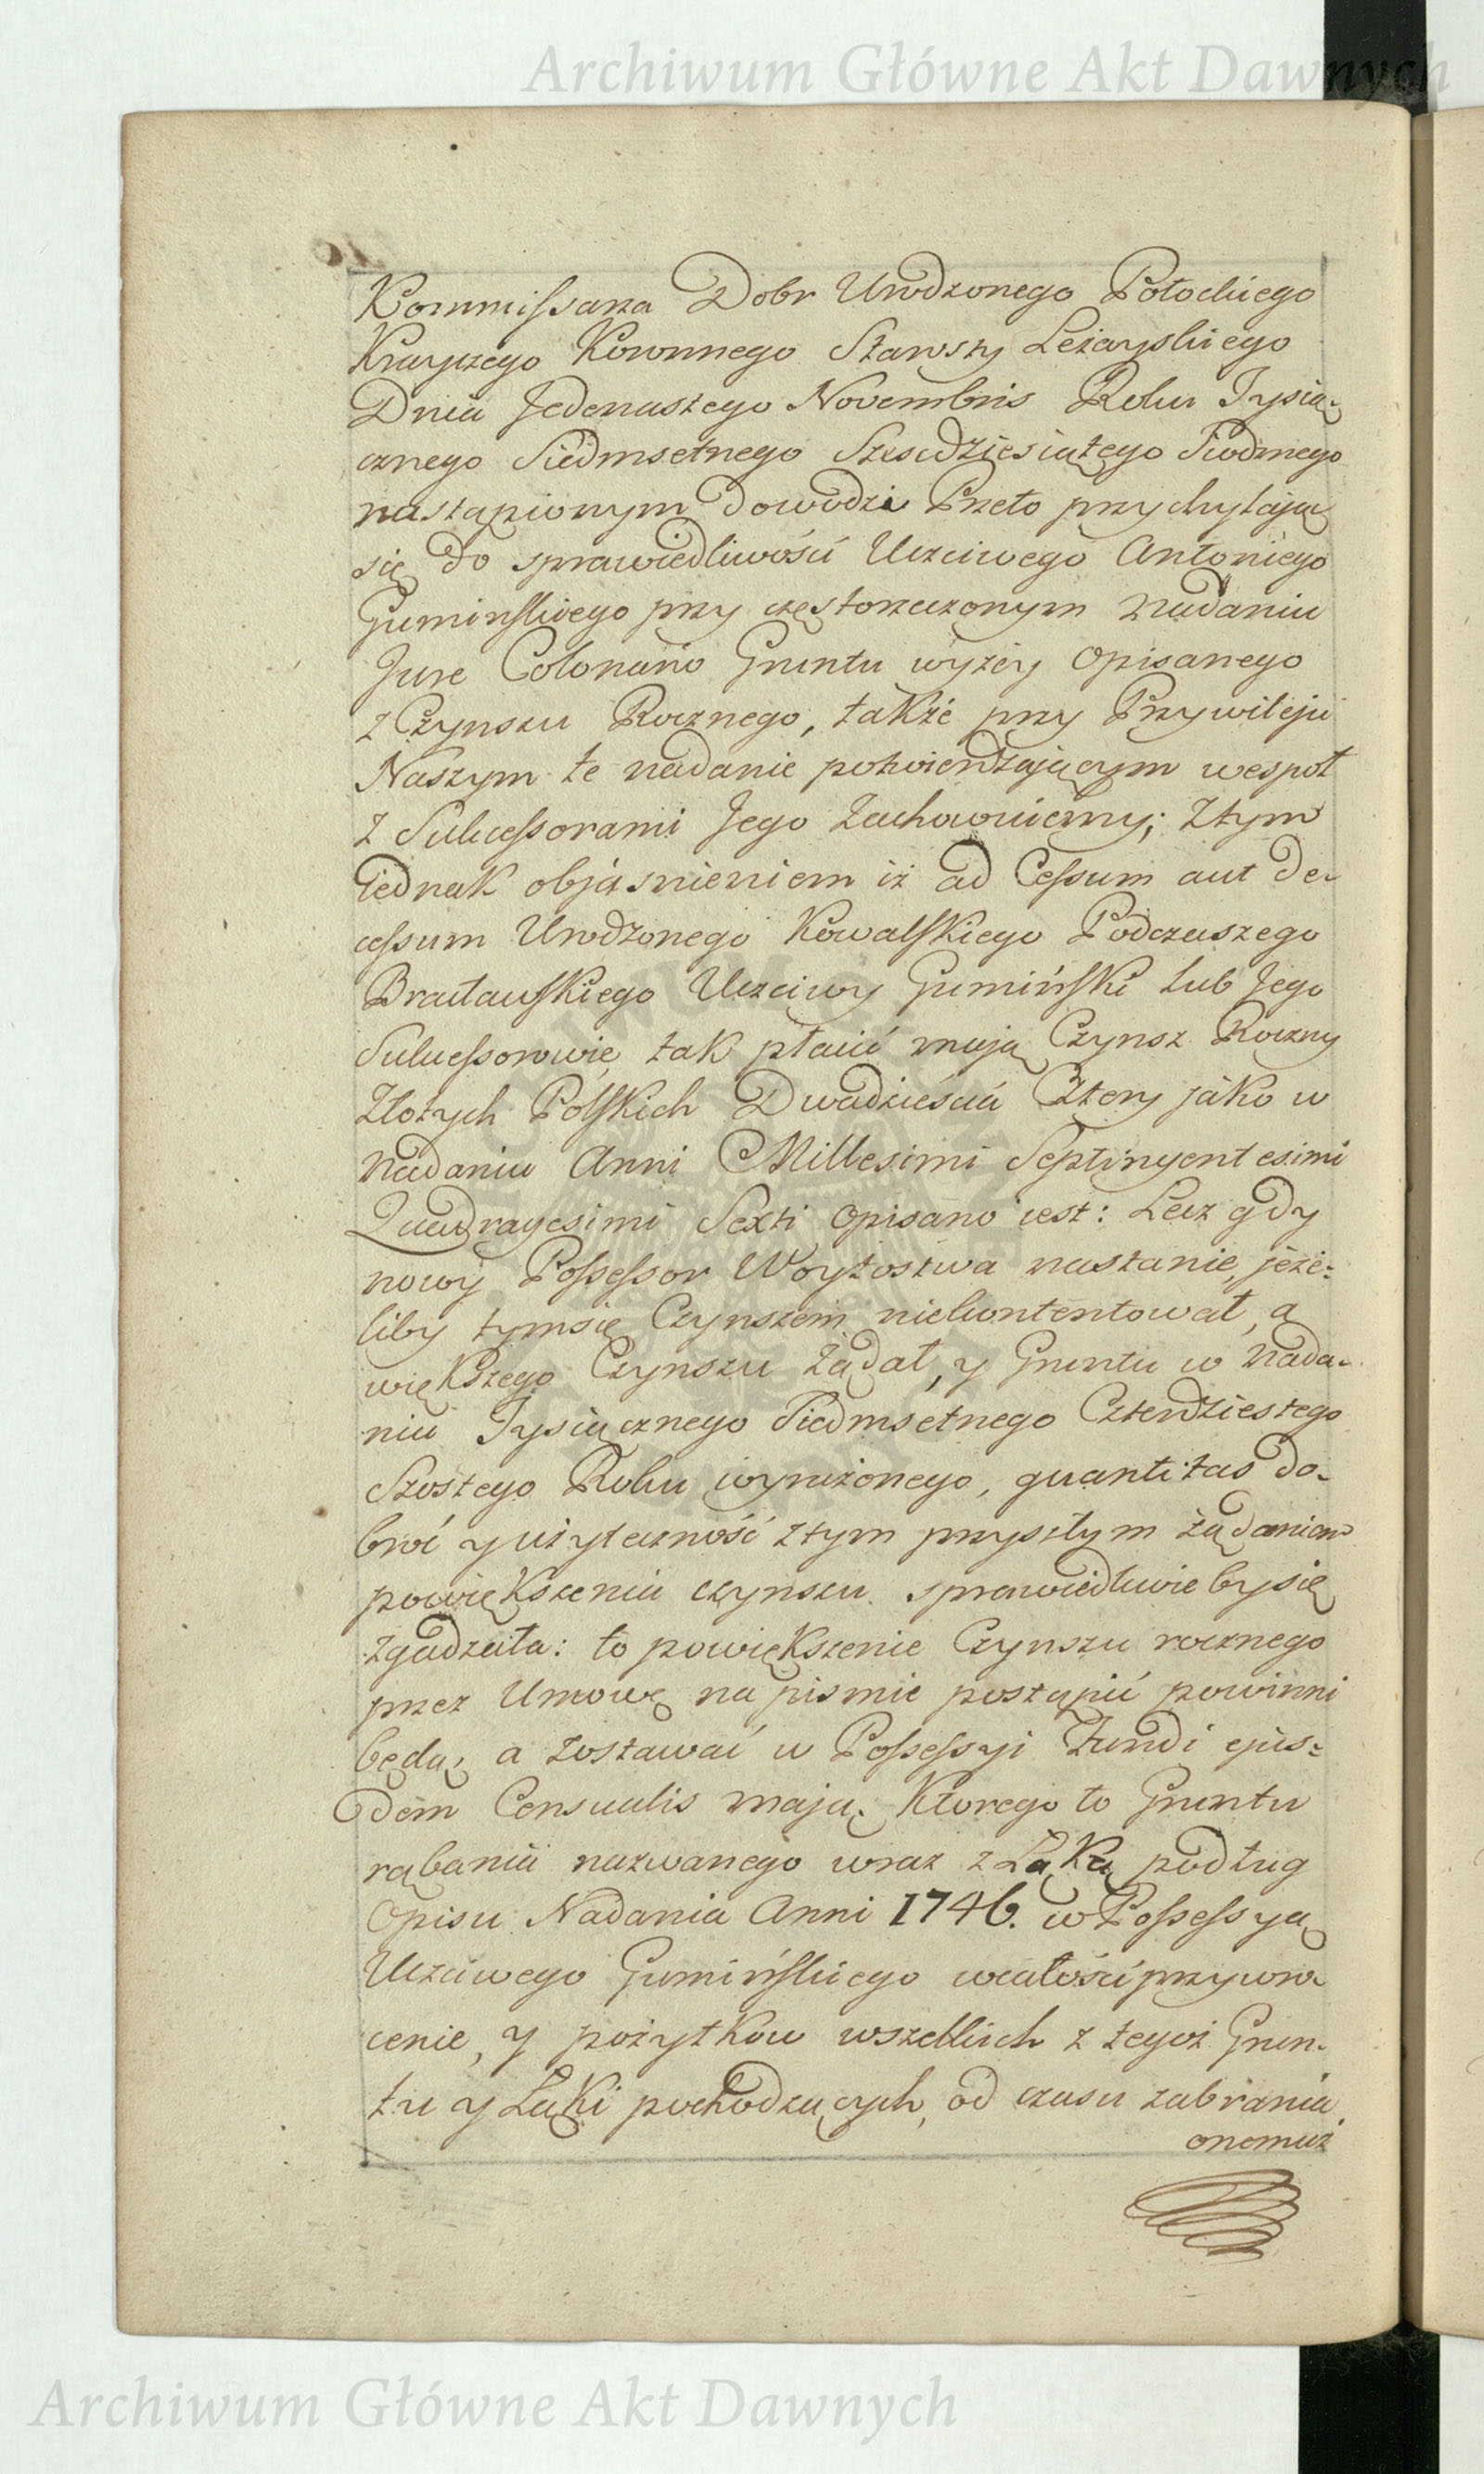 Archiwum Główne Akt Dawnych
Kommissarza Dobr Urodzonego Potockiego
Krayczego Koronnego Starosty Leżayskiego
Dnia Jedenastego Novembris Roku Tysią-
cznego Siedmsetnego Szescdziesiątego Siodmego
nastąpionym dowodzi Przeto przychylając
się do sprawiedliwości Uczciwego Antoniego
Guminskiego przy częstorzeczonym Nadaniu
Jure Colonario Gruntu wyżey opisanego
z Czynszu Rocznego, także przy Przywileju
Naszym te nadanie potwierdzającym wespoł
z Sukcessorami Jego Zachowuiemy; z tym
iednak objasnieniem iż ad Cessum aut De-
cessum Urodzonego Kowalskiego Podczaszego
Bracławskiego Uczciwy Gumiński lub Jego
Sukcessorowie, tak płacić mają Czynsz Roczny
Złotych Polskich Dwadzieścia Cztery jako w
Nadaniu Anni Millesimi Septingentesimi
Quadragesimi Sexti opisano iest: Lecz gdy
nowy Possessor Woytostwa nastanie, jeże-
liby tym się Czynszem niekontentował, a
większego Czynszu żądał, y Gruntu w Nada-
niu Tysiącznego Siedmsetnego Czterdziestego
Szostego Roku wyrażonego, quantitas do-
broć y użyteczność z tym przyszłym żądaniem
powiększenia czynszu sprawiedliwie by się
zgadzała: to powiększenie Czynszu rocznego
przez Umowę na pismie postąpić powinni
będą; a zostawać w Possessyi Fundi ejus-
dem Censualis mają. Ktorego to Gruntu
rąbania nazwanego wraz z Łąką podług
Opisu Nadania Anni 1746. w Possessyą
Uczciwego Gumińskiego wcałości przywro-
cenie, y pożytkow wszelkich z tegoż Grun-
tu y Łąki pochodzących, od czasu zabrania
onemuż
Archiwum Główne Akt Dawnych